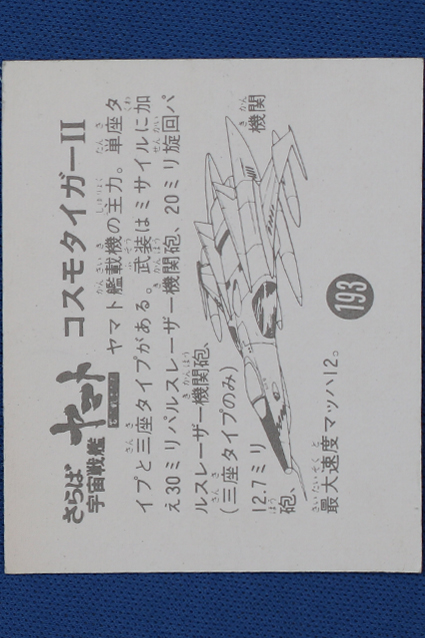 さらば
宇宙戦艦
ヤマト
コスモタイガーII
ヤマト艦載機の主力。単座タ
イプと三座タイプがある。武装はミサイルに加
え30ミリパルスレーザー機関砲、20ミリ旋回パ
ルスレーザー機関砲、
(三座タイプのみ)
12.7ミリ
機関
砲、
最大速度マッハ12。
193